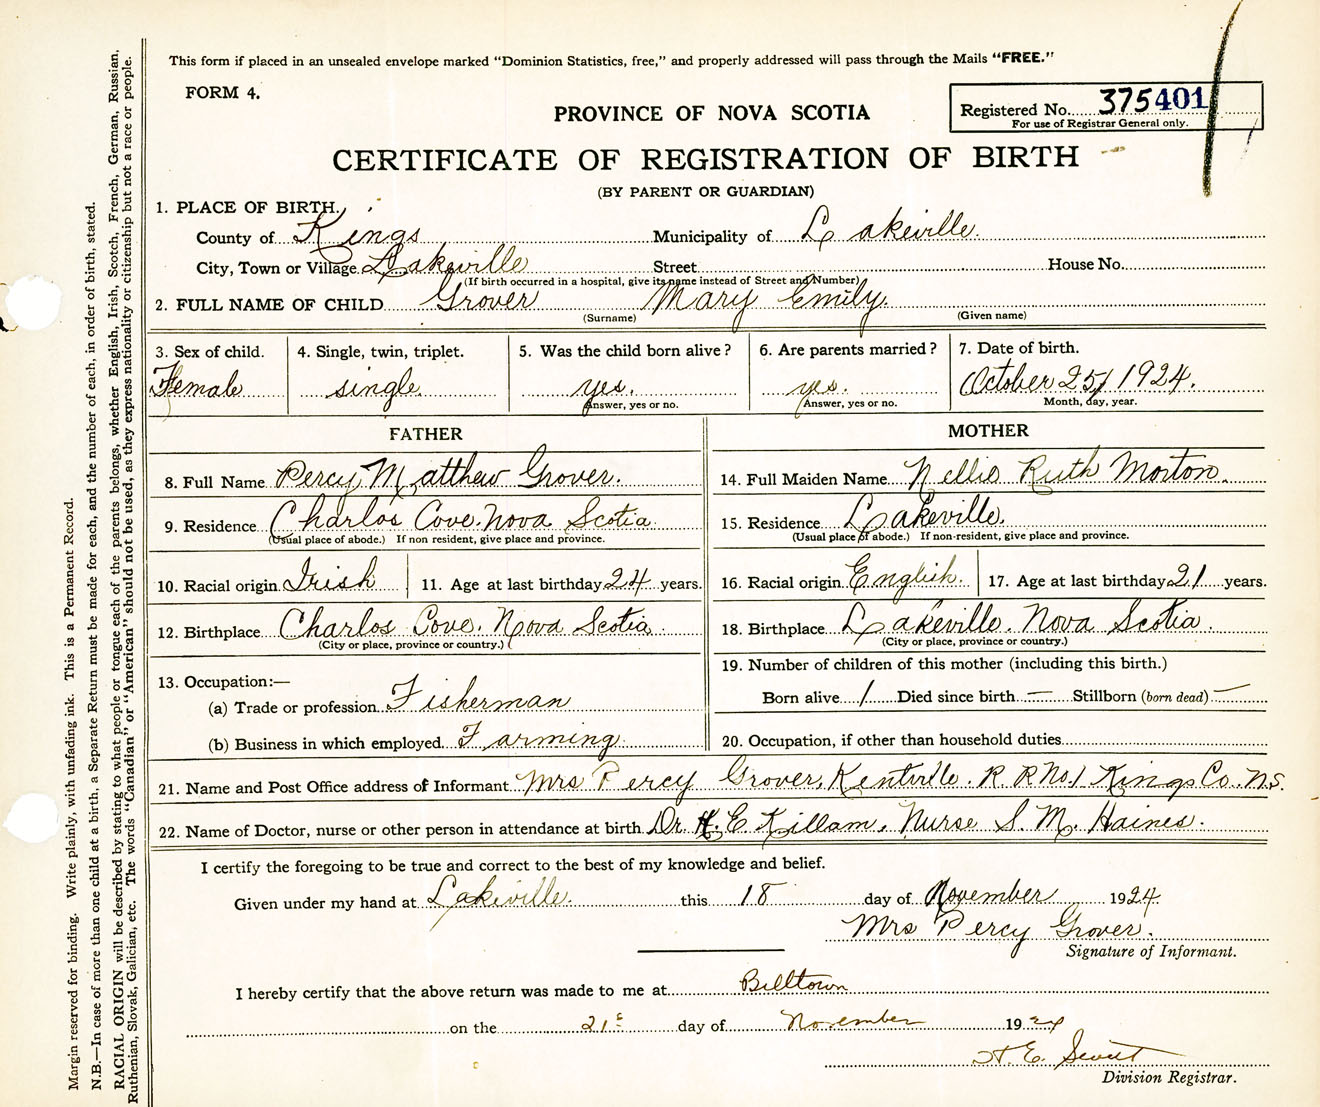 This form if placed in an unsealed envelope marked "Dominion Statistics, free," and properly addressed will pass through the Mails "FREE."
FORM 4.
PROVINCE OF NOVA SCOTIA
Registered No. 375401
For use of Registrar General only.
CERTIFICATE OF REGISTRATION OF BIRTH
(BY PARENT OR GUARDIAN)
1. PLACE OF BIRTH.
County of Kings Municipality of Lakeville.
City, Town or Village Lakeville Street House No.
(If birth occurred in a hospital, give its name instead of Street and Number)
2. FULL NAME OF CHILD Grover Mary Emily.
(Surname) (Given name)
3. Sex of child. 4. Single, twin, triplet. 5. Was the child born alive? 6. Are parents married? 7. Date of birth.
Female single yes. yes. October 25, 1924.
Answer, yes or no. Answer, yes or no. Month, day, year.
FATHER
8. Full Name Percy Matthew Grover.
9. Residence Charlos Cove. Nova Scotia
(Usual place of abode.) If non resident, give place and province.
10. Racial origin Irish 11. Age at last birthday 24 years.
12. Birthplace Charlos Cove. Nova Scotia
(City or place, province or country.)
13. Occupation:—
(a) Trade or profession Fisherman
(b) Business in which employed. Farming
MOTHER
14. Full Maiden Name Nellie Ruth Morton.
15. Residence Lakeville.
(Usual place of abode.) If non-resident, give place and province.
16. Racial origin English. 17. Age at last birthday 21 years.
18. Birthplace Lakeville. Nova Scotia.
(City or place, province or country.)
19. Number of children of this mother (including this birth.)
Born alive 1 Died since birth — Stillborn (born dead) —
20. Occupation, if other than household duties
21. Name and Post Office address of Informant Mrs Percy Grover, Kentville. R. R. No. 1 Kings Co. N.S.
22. Name of Doctor, nurse or other person in attendance at birth Dr. H. E Killam. Nurse S. M. Haines.
I certify the foregoing to be true and correct to the best of my knowledge and belief.
Given under my hand at Lakeville. this 18 day of November 1924.
Mrs Percy Grover.
Signature of Informant.
I hereby certify that the above return was made to me at Billtown
on the 21st day of November 1924
H. E.
Division Registrar.
Margin reserved for binding. Write plainly, with unfading ink. This is a Permanent Record.
N.B.—In case of more than one child at a birth, a Separate Return must be made for each, and the number of each, in order of birth, stated.
RACIAL ORIGIN will be described by stating to what people or tongue each of the parents belongs, whether English, Irish, Scotch, French, German, Russian,
Ruthenian, Slovak, Galician, etc. The words "Canadian" or "American" should not be used, as they express nationality or citizenship but not a race or people.